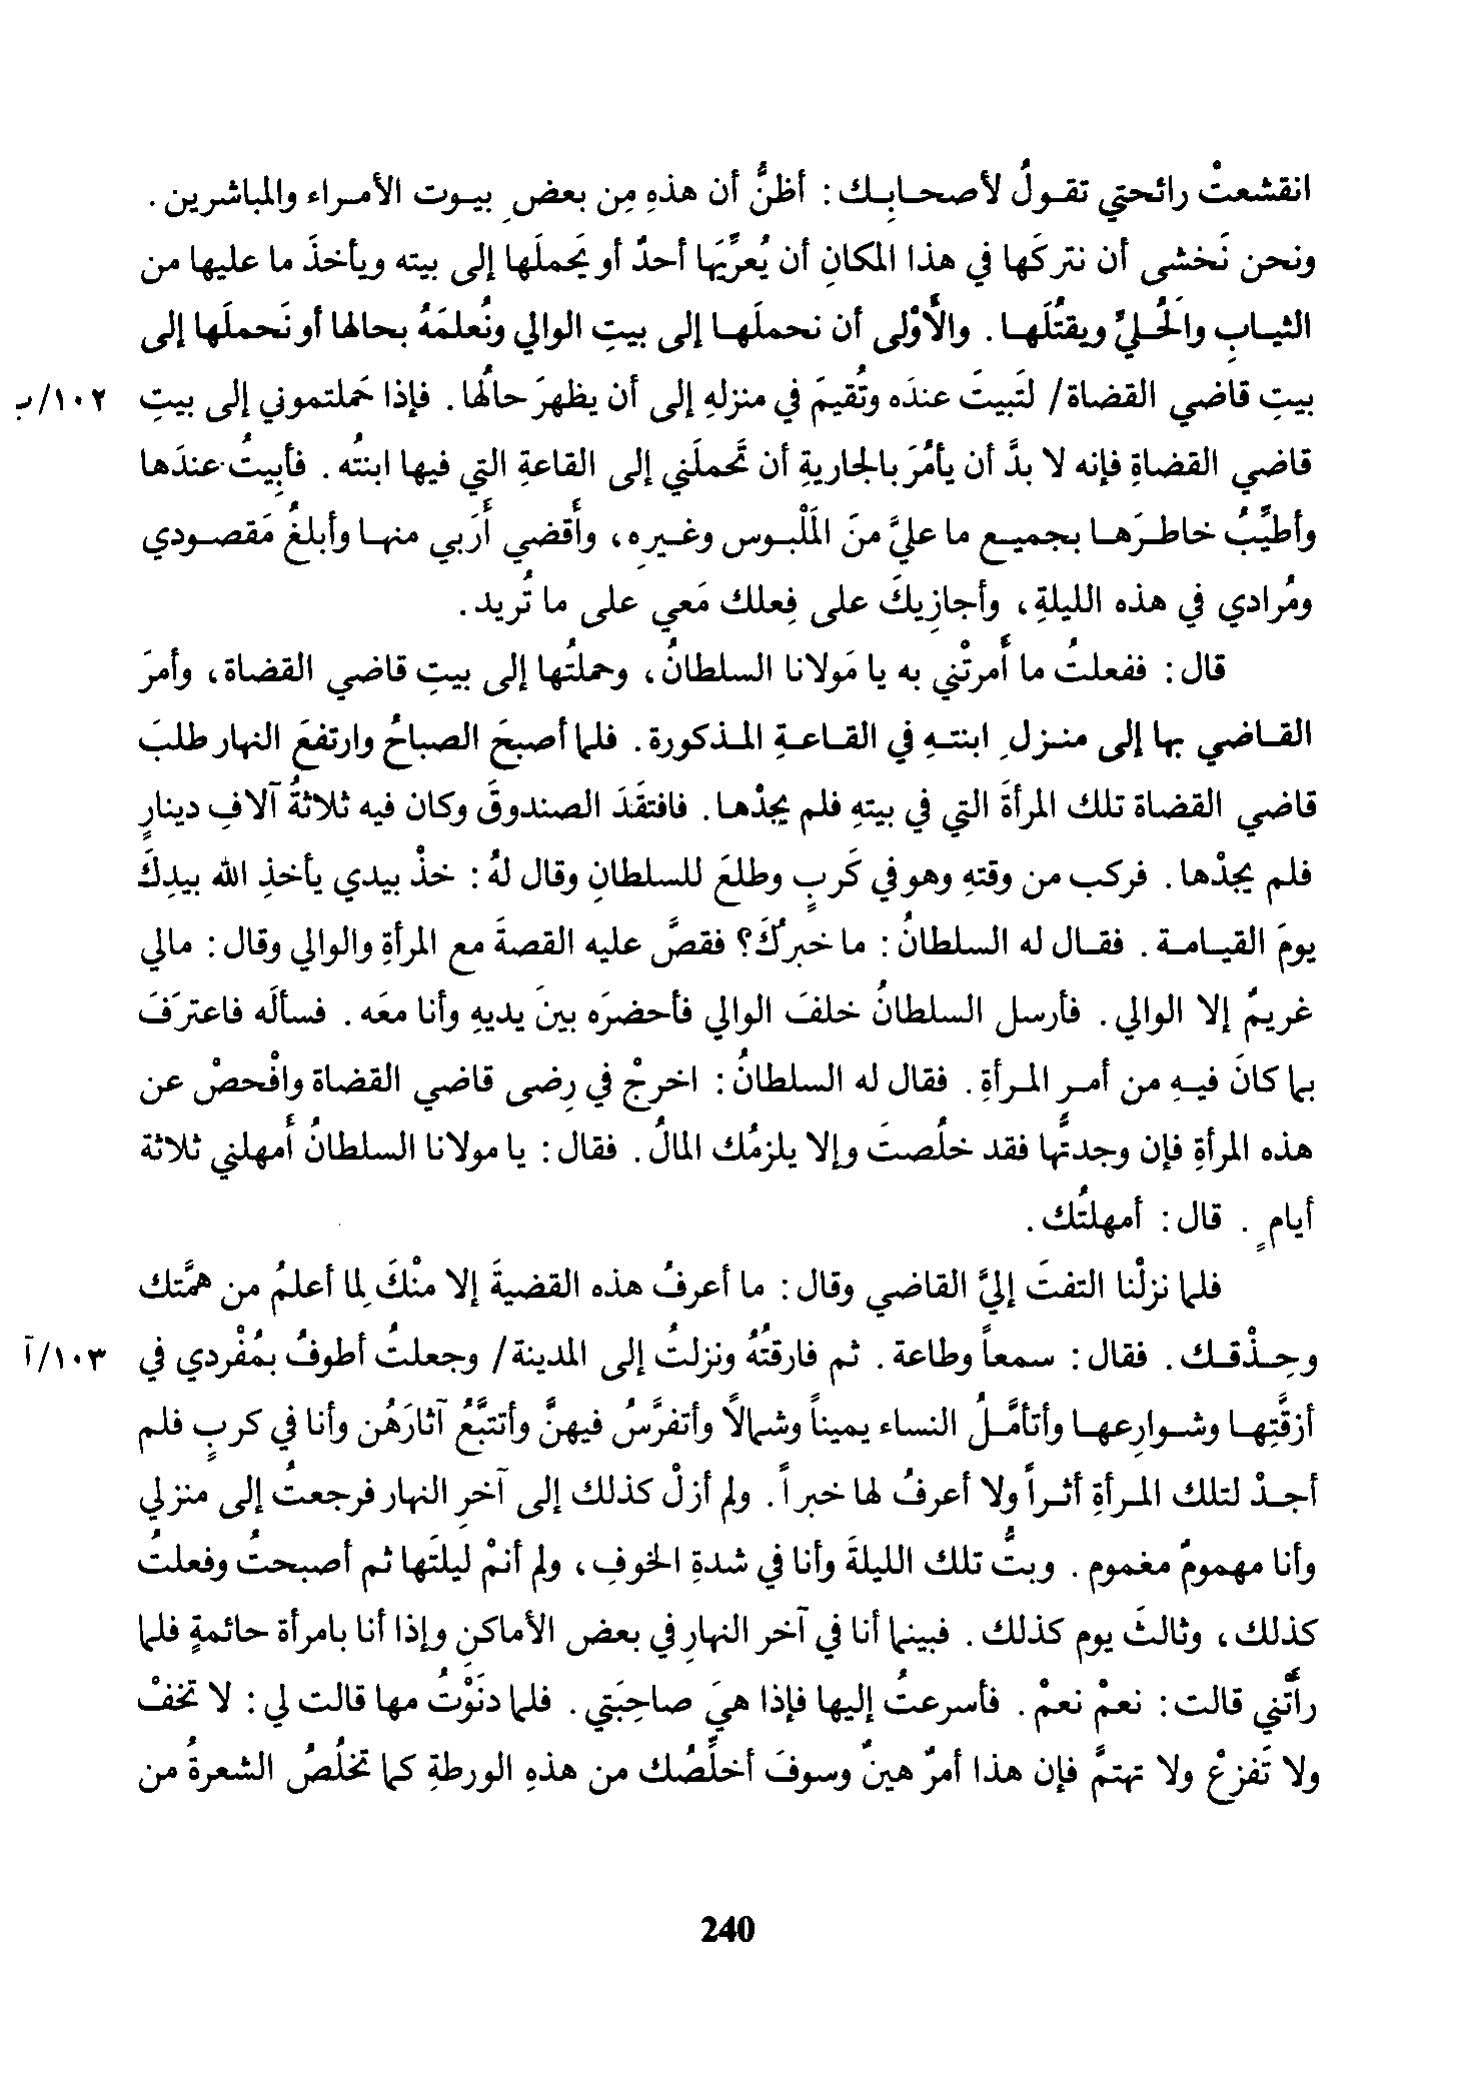 انقشعتْ رائحتي تقولُ لأصحابِك : أظنُّ أن هذهِ مِن بعضِ بيوت الأمراء والمباشرين .
ونحن نَخشى أن نتركَها في هذا المكانِ أن يُعرِّيَها أحدٌ أو يَحملَها إلى بيته ويأخذَ ما عليها من
الثيابِ والحُليِّ ويقتُلَها . والأَوْلى أن نحملَها إلى بيتِ الوالي ونُعلمَهُ بحالها أو نَحملَها إلى
بيتِ قاضي القضاة/ لتَبيتَ عندَه وتُقيمَ في منزلهِ إلى أن يظهرَ حالُها . فإذا حَملتموني إلى بيتِ ١٠٢/ب
قاضي القضاةِ فإنه لا بدَّ أن يأمُرَ بالجاريةِ أن تَحملَني إلى القاعةِ التي فيها ابنتُه . فأبِيتُ عندَها
وأطيِّبُ خاطرَها بجميع ما عليَّ منَ المَلْبوس وغيرِه ، وأَقضي أَرَبي منها وأبلغُ مَقصودي
ومُرادي في هذه الليلةِ ، وأجازِيكَ على فِعلك مَعي على ما تُريد .
قال : ففعلتُ ما أَمرتْني به يا مَولانا السلطانُ ، وحملتُها إلى بيتِ قاضي القضاة ، وأمرَ
القاضي بها إلى منزلِ ابنتهِ في القاعةِ المذكورة . فلما أصبحَ الصباحُ وارتفعَ النهار طلبَ
قاضي القضاة تلك المرأةَ التي في بيتهِ فلم يجدْها . فافتقَدَ الصندوقَ وكان فيه ثلاثةُ آلافِ دينارٍ
فلم يجدْها . فركب من وقتهِ وهو في كَربٍ وطلعَ للسلطانِ وقال لهُ : خذْ بيدي يأخذِ الله بيدِكَ
يومَ القيامة . فقال له السلطانُ : ما خبرُكَ؟ فقصَّ عليه القصةَ مع المرأةِ والوالي وقال : مالي
غريمٌ إلا الوالي . فأرسل السلطانُ خلفَ الوالي فأحضرَه بينَ يديهِ وأنا معَه . فسألَه فاعترَفَ
بما كانَ فيهِ من أمرِ المرأةِ . فقال له السلطانُ : اخرجْ في رِضى قاضي القضاة وافْحصْ عن
هذه المرأةِ فإن وجدتَّها فقد خلُصتَ وإلا يلزمُك المالُ . فقال : يا مولانا السلطانُ أَمهلني ثلاثة
أيامٍ . قال : أمهلتُك .
فلما نزلْنا التفتَ إليَّ القاضي وقال : ما أعرفُ هذه القضيةَ إلا منْكَ لِما أعلمُ من همَّتك
وحِذْقك . فقال : سمعاً وطاعة . ثم فارقتُهُ ونزلتُ إلى المدينة/ وجعلتُ أطوفُ بمُفْردي في ١٠٣/آ
أزقَّتِها وشوارِعها وأتأمَّلُ النساء يميناً وشمالاً وأتفرَّسُ فيهنَّ وأتتبَّعُ آثارَهُن وأنا في كربٍ فلم
أجدْ لتلك المرأةِ أثراً ولا أعرفُ لها خبراً . ولم أزلْ كذلك إلى آخرِ النهار فرجعتُ إلى منزلي
وأنا مهمومٌ مغموم . وبتُّ تلك الليلةَ وأنا في شدةِ الخوفِ ، ولم أنمْ ليلتَها ثم أصبحتُ وفعلتُ
كذلك ، وثالثَ يوم كذلك . فبينما أنا في آخر النهارِ في بعض الأماكنِ وإذا أنا بامرأة حائمةٍ فلما
رأَتْني قالت : نعمْ نعمْ . فأسرعتُ إليها فإذا هيَ صاحِبَتي . فلما دنَوْتُ مها قالت لي : لا تخفْ
ولا تَفزعْ ولا تهتمَّ فإن هذا أمرٌ هينٌ وسوفَ أخلِّصُك من هذهِ الورطةِ كما تخلُصُ الشعرةُ من
240